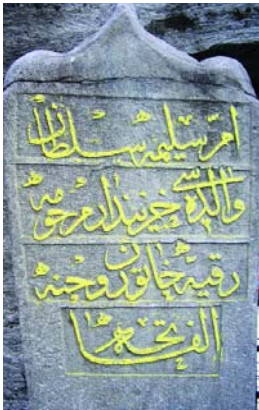 امّ سليمه سلطان
والده سى خزيندار مرحومه
رقيه خاتون روحنه
الفاتحه